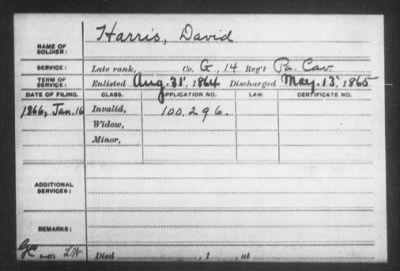 Harris, David
NAME OF SOLDIER:
SERVICE: Late rank, Co. G, 14 Reg't Pa. Cav.
TERM OF SERVICE: Enlisted Aug. 31, 1864 Discharged May. 13, 1865
DATE OF FILING. CLASS. APPLICATION NO. LAW. CERTIFICATE NO.
1866, Jan. 16 Invalid, 100.296.
Widow,
Minor,
ADDITIONAL SERVICES:
REMARKS:
Died , 1 , at